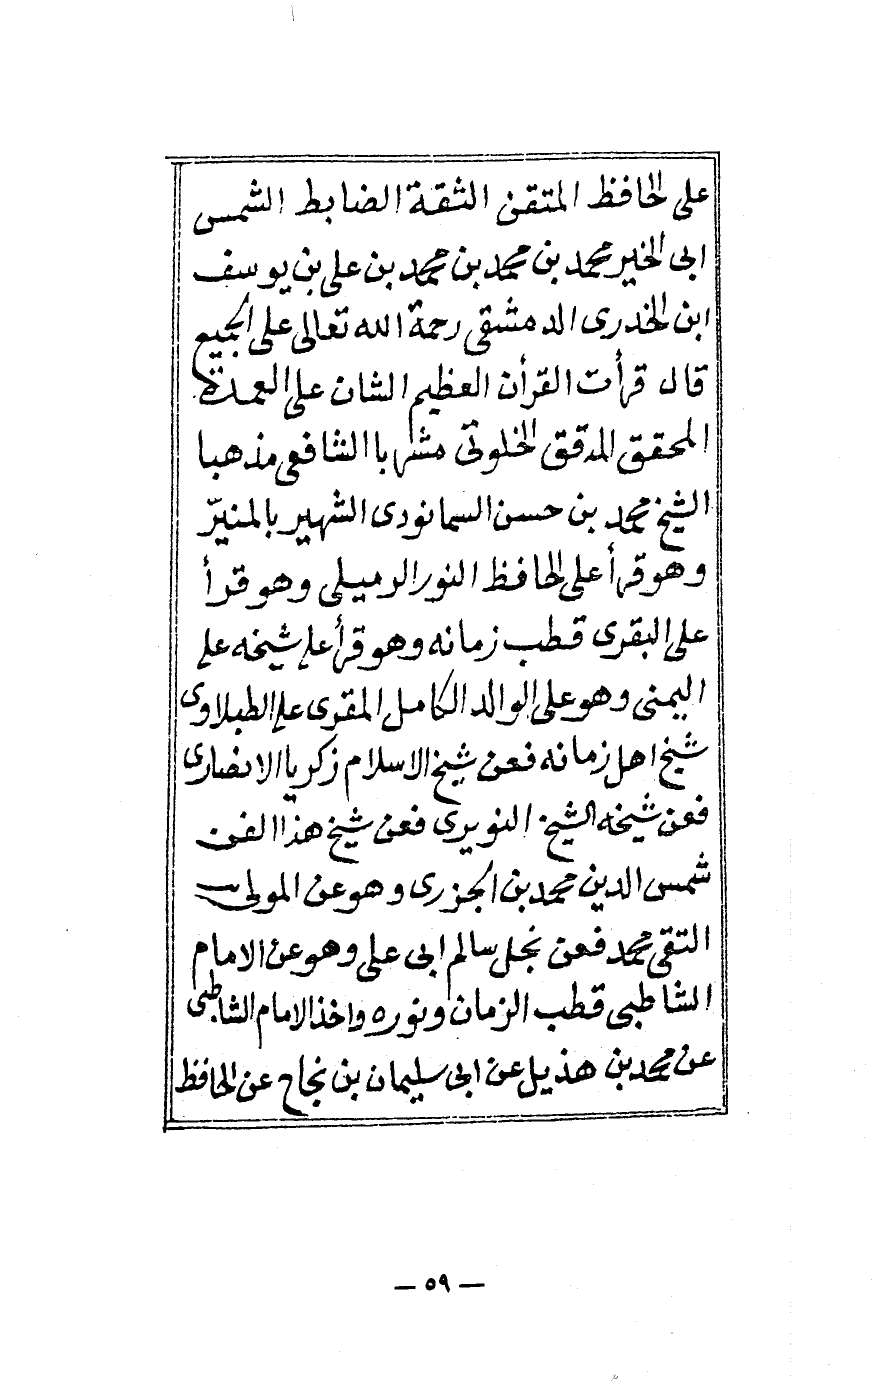 على الحافظ المتقن الثقة الضابط الشمس
ابى الخير محمد بن محمد بن محمد بن على بن يوسف
ابن الخدرى الدمشقى رحمة الله تعالى على الجميع
قال قرأت القرأن العظيم الشان على العمدة
المحقق المدقق الخلوتى مشربا الشافعى مذهبا
الشيخ محمد بن حسن السمانودى الشهير بالمنيّر
وهو قرأ على الحافظ النور الرميلى وهو قرأ
على البقرى قطب زمانه وهو قرأ على شيخه على
اليمنى وهو على الوالد الكامل المقرى على الطبلاوى
شيخ اهل زمانه فعن شيخ الاسلام زكريا الانصارى
فعن شيخه الشيخ النويرى فعن شيخ هذا الفن
شمس الدين محمد بن الجزرى وهو عن المولى
التقى محمد فعن نجل سالم ابى على وهو عن الامام
الشاطبى قطب الزمان ونوره واخذ الامام الشاطبى
عن محمد بن هذيل عن ابى سليمان بن نجاح عن الحافظ
— ٥٩ —